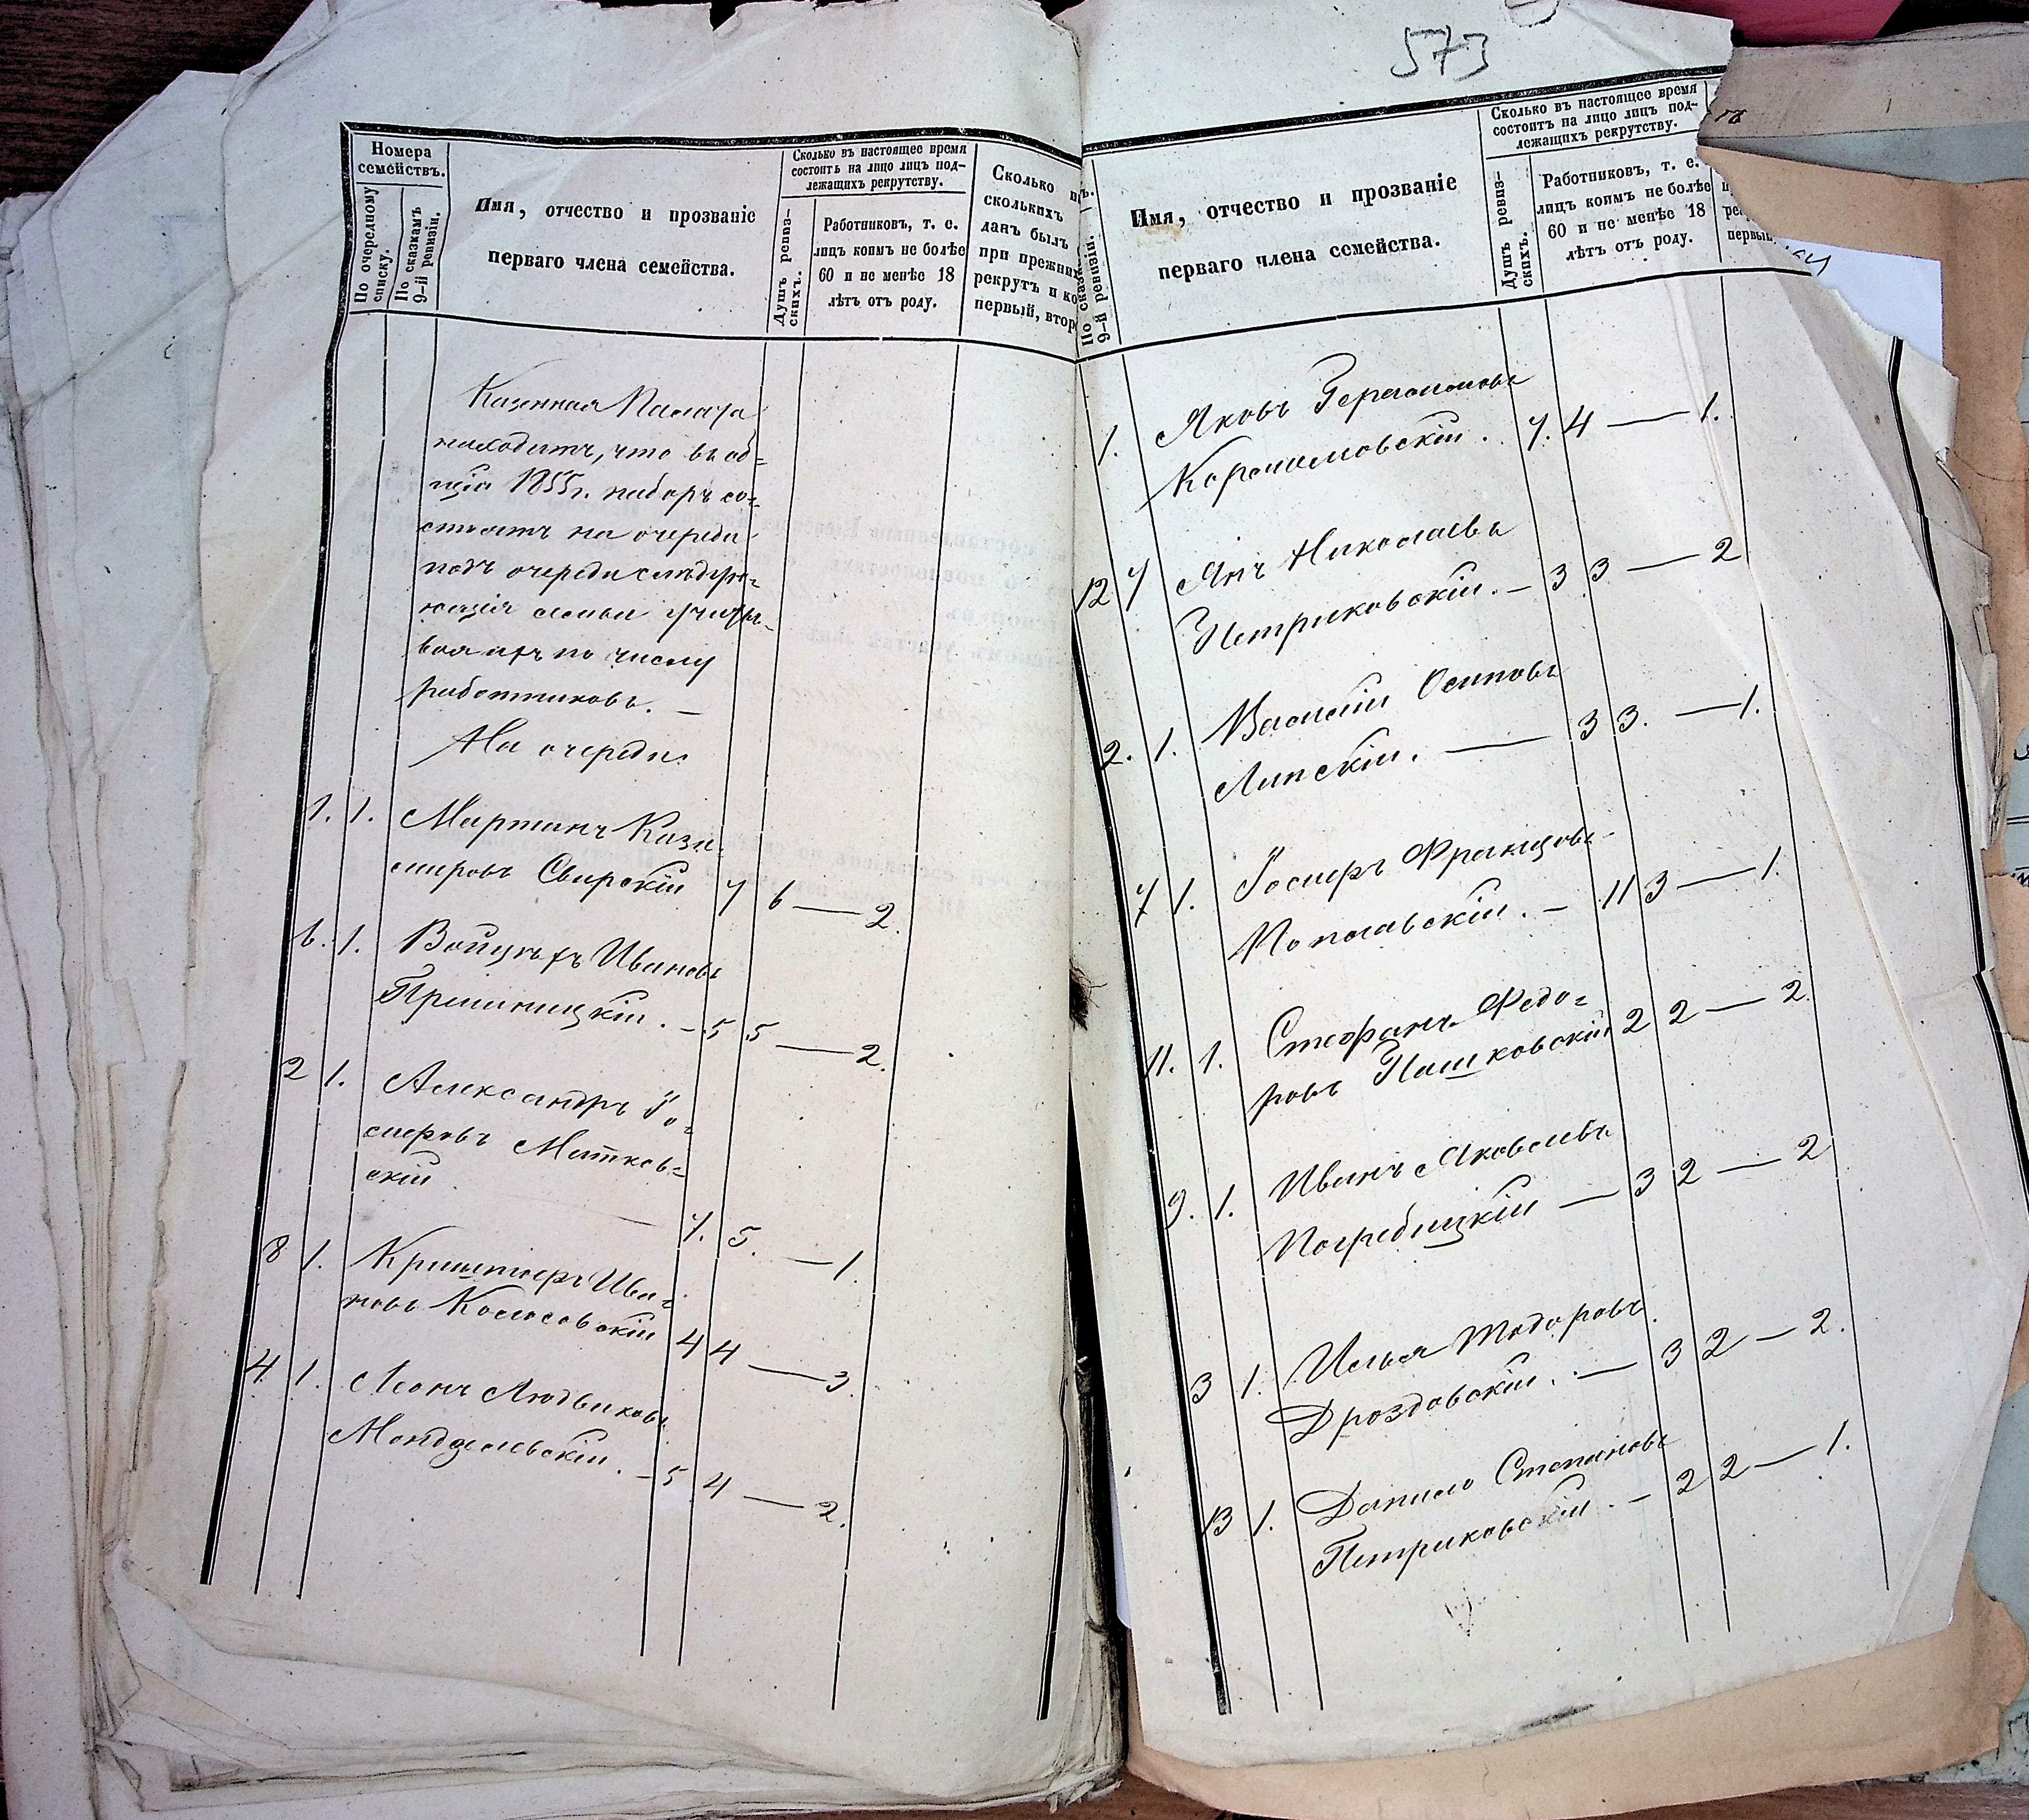 573
Номера
семействъ.
По очередному
списку.
По сказкамъ
9-й ревизіи.
Имя, отчество и прозваніе
перваго члена семейства.
Сколько въ настоящее время
состоитъ на лицо лицъ под-
лежащихъ рекрутству.
Душъ ревиз-
скихъ.
Работниковъ, т. е.
лицъ коимъ не болѣе
60 и не менѣе 18
лѣтъ отъ роду.
Сколько
сколькихъ
данъ былъ
при прежних
рекрутъ и ко
первый, втор
Казенная Палата
находитъ, что въ об=
щій 1855 г. наборъ со=
стоятъ на очереди
подъ очереди слѣдую=
щія семьи
вая ихъ по числу
работниковъ. —
На очереди.
1. 1. Мартинъ Кази=
мировъ Свирскій 7 6 — 2.
6. 1. Войцѣхъ Ивановъ
5 5 — 2.
2 1. Александръ Іо=
сифовъ Митков=
скій
7. 5. — 1.
8 1. Криштофъ Ива=
новъ Колосовскій 4 4 — 3.
4. 1. Леонъ Людвиковъ
. — 5 4 — 2.
По сказка
9-й ревизіи.
Имя, отчество и прозваніе
перваго члена семейства.
Сколько въ настоящее время
состоитъ на лицо лицъ под-
лежащихъ рекрутству.
Душъ ревиз-
скихъ.
Работниковъ, т. е.
лицъ коимъ не болѣе
60 и не менѣе 18
лѣтъ отъ роду.
первый
1. Яковъ
7. 4 — 1.
12 7 Янъ Николаевъ
Петриковскій. — 3 3 — 2
2. 1. Василій Осиповъ
Липскій. — 3 3. — 1.
7 1. Іосифъ Францовъ
Поплавскій. — 11 3 — 1.
11. 1. Стефанъ Федо=
ровъ Пашковскій 2 2 — 2.
9. 1. Иванъ Яковлевъ
Погребицкій — 3 2 — 2
3 1. Илья Тодоровъ
Дроздовскій. — 3 2 — 2.
13 1. Данило Степановъ
Петриковскій. — 2 2 — 1.